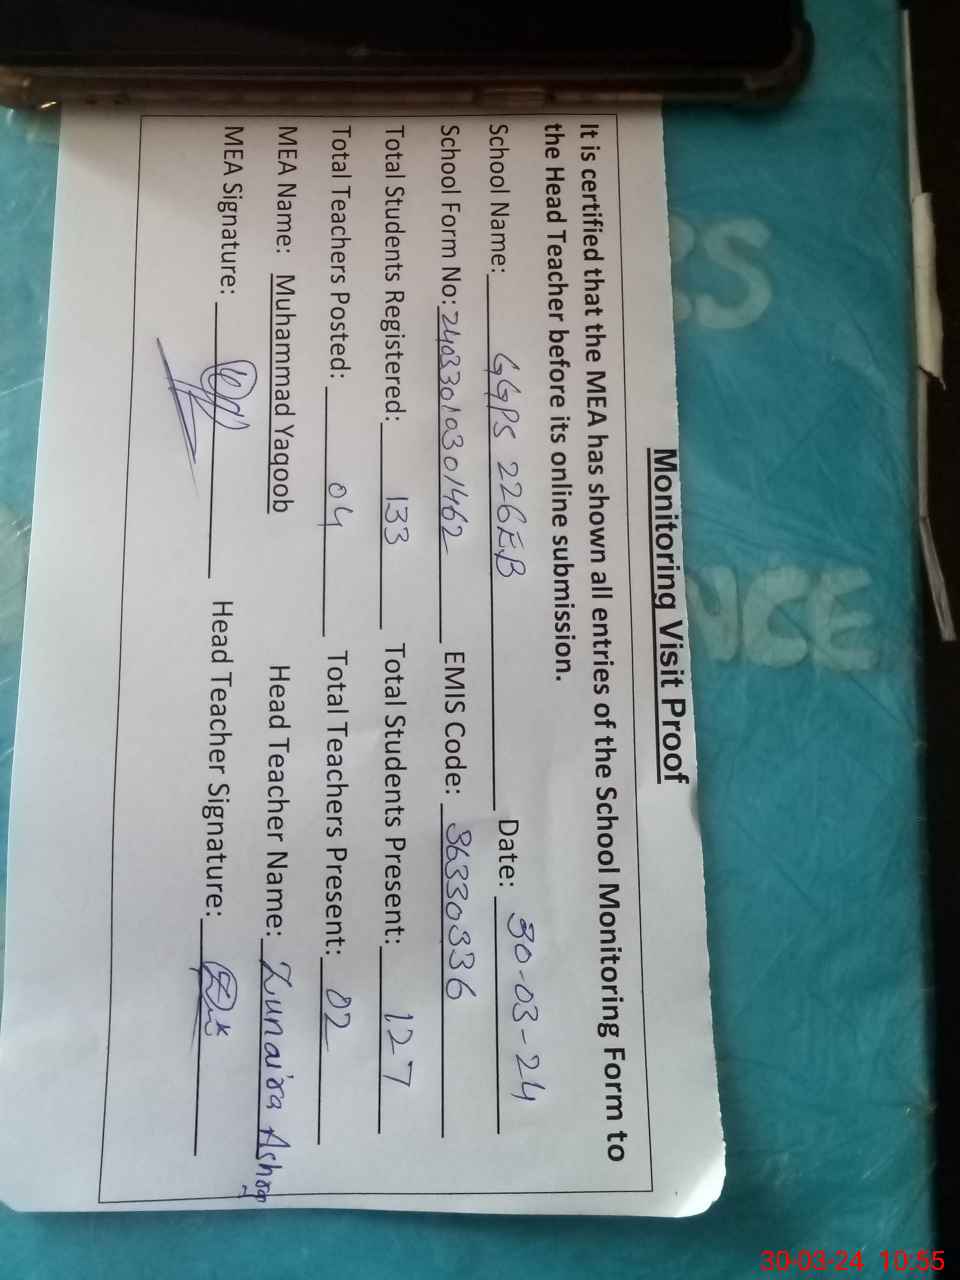 Monitoring Visit Proof
It is certified that the MEA has shown all entries of the School Monitoring Form to
the Head Teacher before its online submission.
School Name: GGPS 226EB Date: 30-03-24
School Form No: 24033010301462 EMIS Code: 36330336
Total Students Registered: 133 Total Students Present: 127
Total Teachers Posted: 04 Total Teachers Present: 02
MEA Name: Muhammad Yaqoob Head Teacher Name: Zunaira Ashraf
MEA Signature: Head Teacher Signature:
NCE
30-03-24 10:55